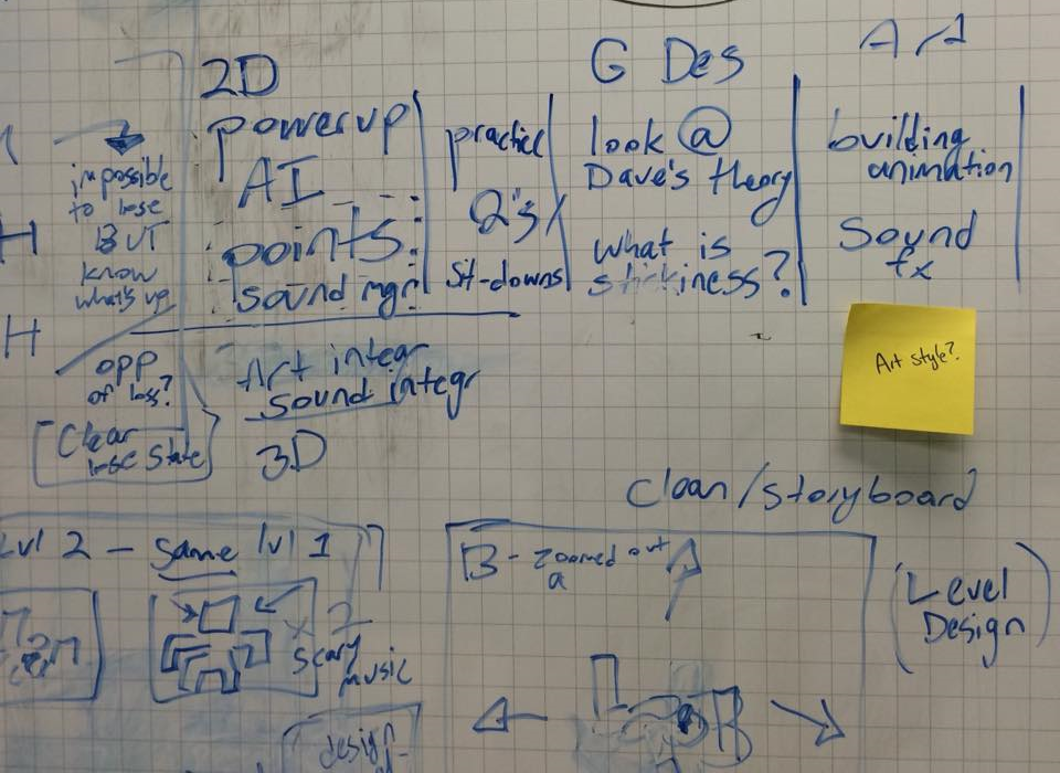 impossible
to lose
BUT
know
what's up
opp
of loss?
Clear
lose state
2D
powerup
AI
points
sound mgr
Art integr
Sound integr
3D
practice
Q's
sit-downs
G Des
look @
Dave's theory
what is
stickiness?
Art
building
animation
Sound
fx
Art style?
clean/storyboard
Lvl 2 - same lvl 1
x 2
scary
music
design
B - zoomed out
a
Level
Design